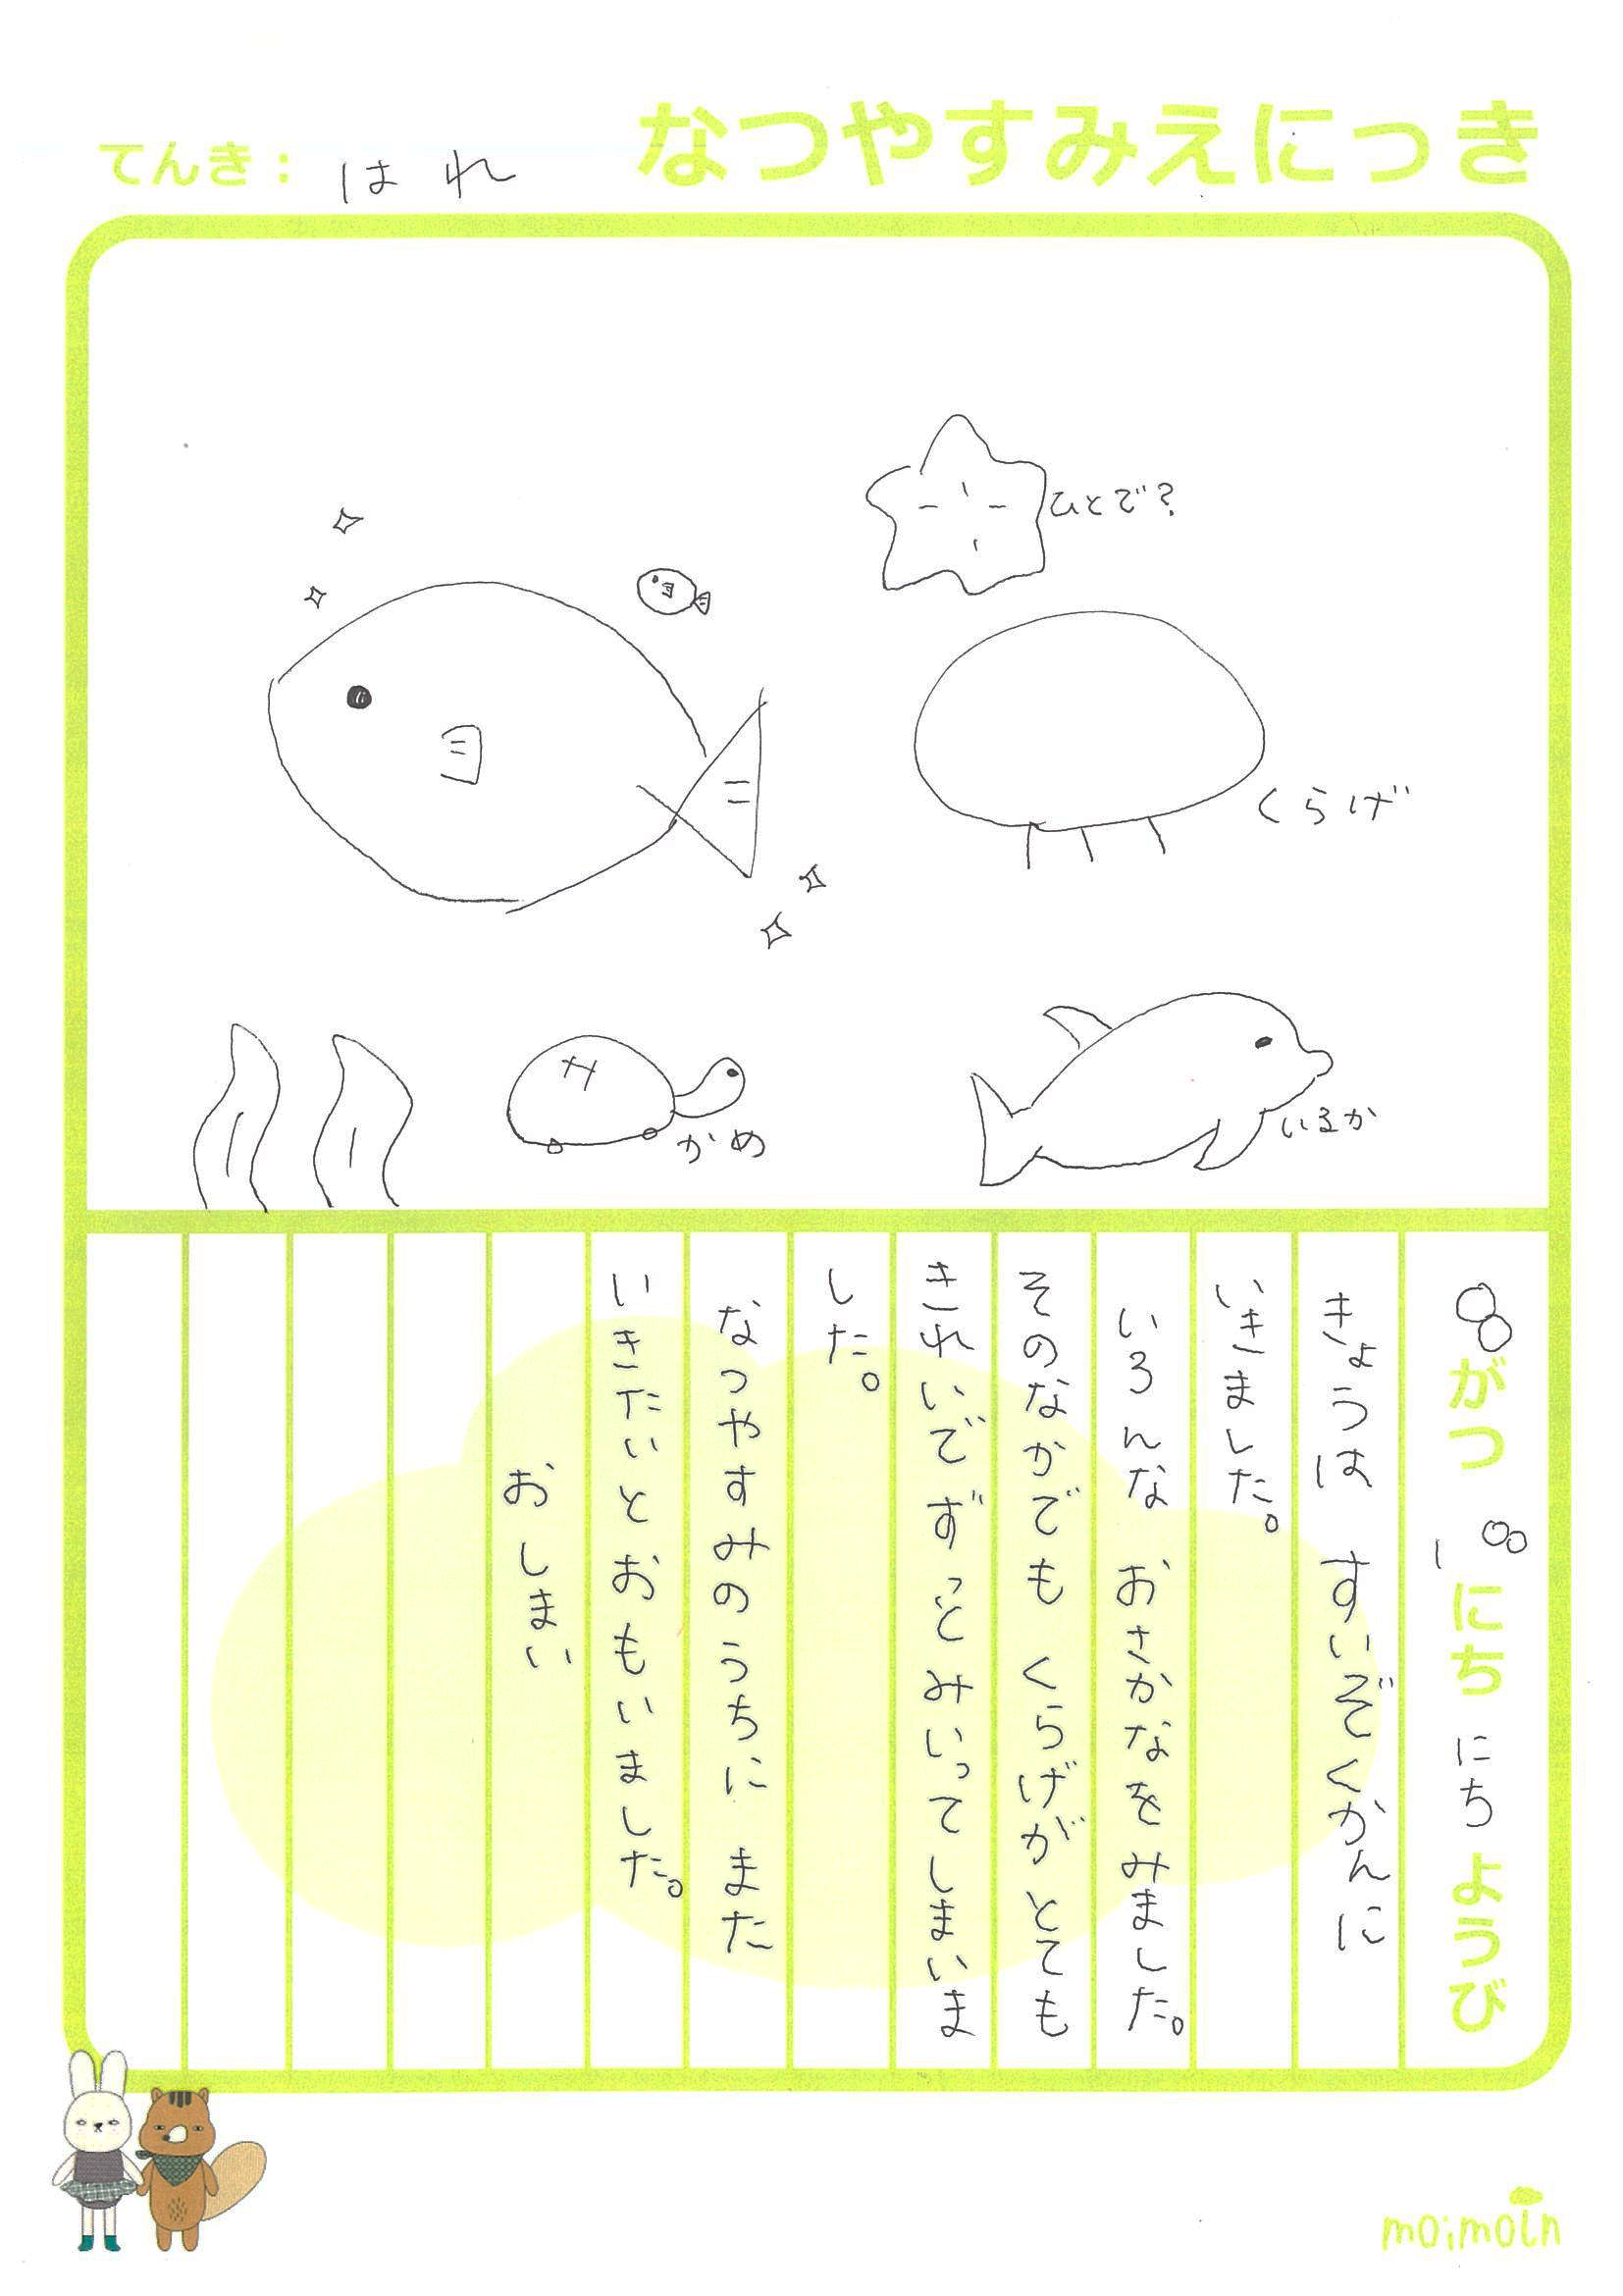 なつやすみえにっき
てんき： はれ
ひとで？
くらげ
かめ
いるか
8がつ 18にち にちようび
きょうは すいぞくかんに
いきました。
いろんな おさかなをみました。
そのなかでも くらげが とても
きれいで ずっと みいってしまいま
した。
なつやすみのうちに また
いきたいとおもいました。
おしまい
moimoln